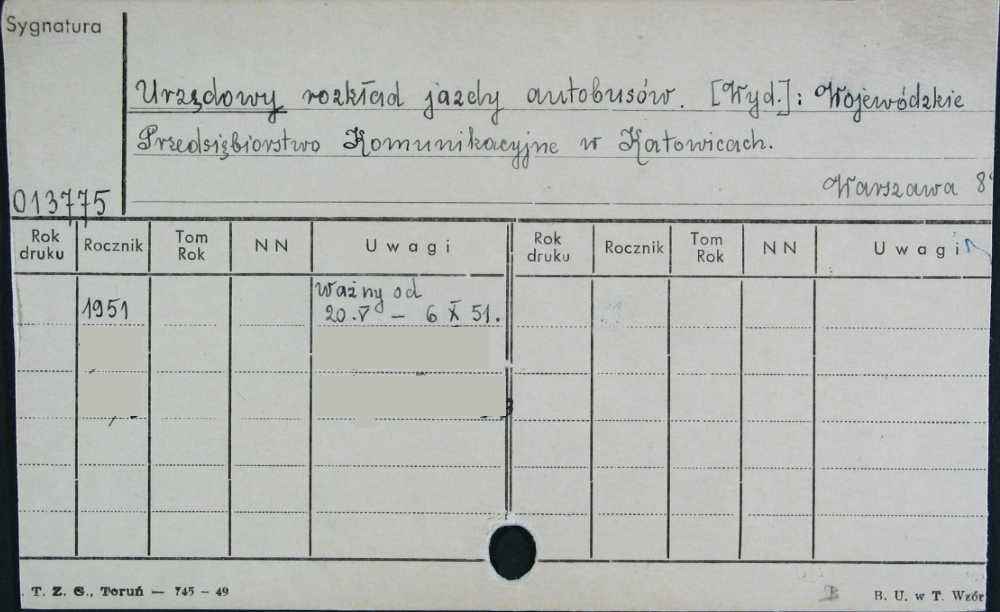 Sygnatura
Urzędowy rozkład jazdy autobusów. [Wyd.]: Wojewódzkie
Przedsiębiorstwo Komunikacyjne w Katowicach.
Warszawa 8°
013775
Rok druku Rocznik Tom Rok NN Uwagi Rok druku Rocznik Tom Rok NN Uwagi
Ważny od
1951 20.V – 6 X 51.
T. Z. G., Toruń — 745 – 49
B. U. w T. Wzór